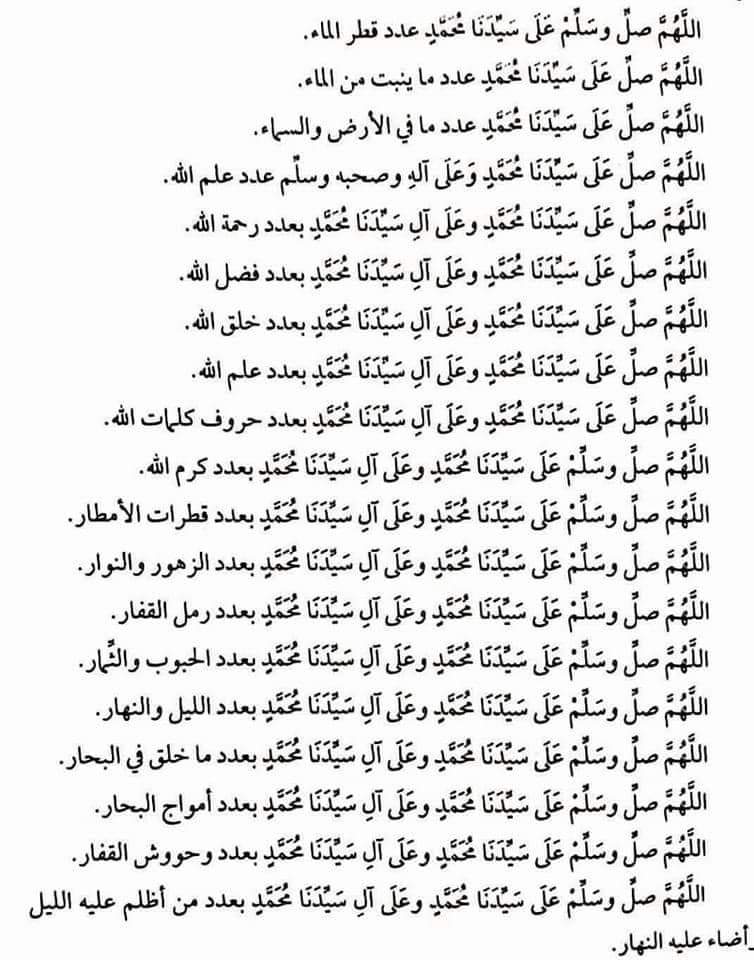 اللَّهُمَّ صلِّ وسَلِّمْ عَلَى سَيِّدَنَا مُحَمَّدٍ عدد قطر الماء.
اللَّهُمَّ صلِّ عَلَى سَيِّدَنَا مُحَمَّدٍ عدد ما ينبت من الماء.
اللَّهُمَّ صلِّ عَلَى سَيِّدَنَا مُحَمَّدٍ عدد ما في الأرض والسماء.
اللَّهُمَّ صلِّ عَلَى سَيِّدَنَا مُحَمَّدٍ وَعَلَى آلهِ وصحبه وسلِّم عدد علم الله.
اللَّهُمَّ صلِّ عَلَى سَيِّدَنَا مُحَمَّدٍ وعَلَى آلِ سَيِّدَنَا مُحَمَّدٍ بعدد رحمة الله.
اللَّهُمَّ صلِّ عَلَى سَيِّدَنَا مُحَمَّدٍ وعَلَى آلِ سَيِّدَنَا مُحَمَّدٍ بعدد فضل الله.
اللَّهُمَّ صلِّ عَلَى سَيِّدَنَا مُحَمَّدٍ وعَلَى آلِ سَيِّدَنَا مُحَمَّدٍ بعدد خلق الله.
اللَّهُمَّ صلِّ عَلَى سَيِّدَنَا مُحَمَّدٍ وعَلَى آلِ سَيِّدَنَا مُحَمَّدٍ بعدد علم الله.
اللَّهُمَّ صلِّ عَلَى سَيِّدَنَا مُحَمَّدٍ وعَلَى آلِ سَيِّدَنَا مُحَمَّدٍ بعدد حروف كلمات الله.
اللَّهُمَّ صلِّ وسَلِّمْ عَلَى سَيِّدَنَا مُحَمَّدٍ وعَلَى آلِ سَيِّدَنَا مُحَمَّدٍ بعدد كرم الله.
اللَّهُمَّ صلِّ وسَلِّمْ عَلَى سَيِّدَنَا مُحَمَّدٍ وعَلَى آلِ سَيِّدَنَا مُحَمَّدٍ بعدد قطرات الأمطار.
اللَّهُمَّ صلِّ وسَلِّمْ عَلَى سَيِّدَنَا مُحَمَّدٍ وعَلَى آلِ سَيِّدَنَا مُحَمَّدٍ بعدد الزهور والنوار.
اللَّهُمَّ صلِّ وسَلِّمْ عَلَى سَيِّدَنَا مُحَمَّدٍ وعَلَى آلِ سَيِّدَنَا مُحَمَّدٍ بعدد رمل القفار.
اللَّهُمَّ صلِّ وسَلِّمْ عَلَى سَيِّدَنَا مُحَمَّدٍ وعَلَى آلِ سَيِّدَنَا مُحَمَّدٍ بعدد الحبوب والثِّمار.
اللَّهُمَّ صلِّ وسَلِّمْ عَلَى سَيِّدَنَا مُحَمَّدٍ وعَلَى آلِ سَيِّدَنَا مُحَمَّدٍ بعدد الليل والنهار.
اللَّهُمَّ صلِّ وسَلِّمْ عَلَى سَيِّدَنَا مُحَمَّدٍ وعَلَى آلِ سَيِّدَنَا مُحَمَّدٍ بعدد ما خلق في البحار.
اللَّهُمَّ صلِّ وسَلِّمْ عَلَى سَيِّدَنَا مُحَمَّدٍ وعَلَى آلِ سَيِّدَنَا مُحَمَّدٍ بعدد أمواج البحار.
اللَّهُمَّ صلِّ وسَلِّمْ عَلَى سَيِّدَنَا مُحَمَّدٍ وعَلَى آلِ سَيِّدَنَا مُحَمَّدٍ بعدد وحووش القفار.
اللَّهُمَّ صلِّ وسَلِّمْ عَلَى سَيِّدَنَا مُحَمَّدٍ وعَلَى آلِ سَيِّدَنَا مُحَمَّدٍ بعدد من أظلم عليه الليل
وأضاء عليه النهار.